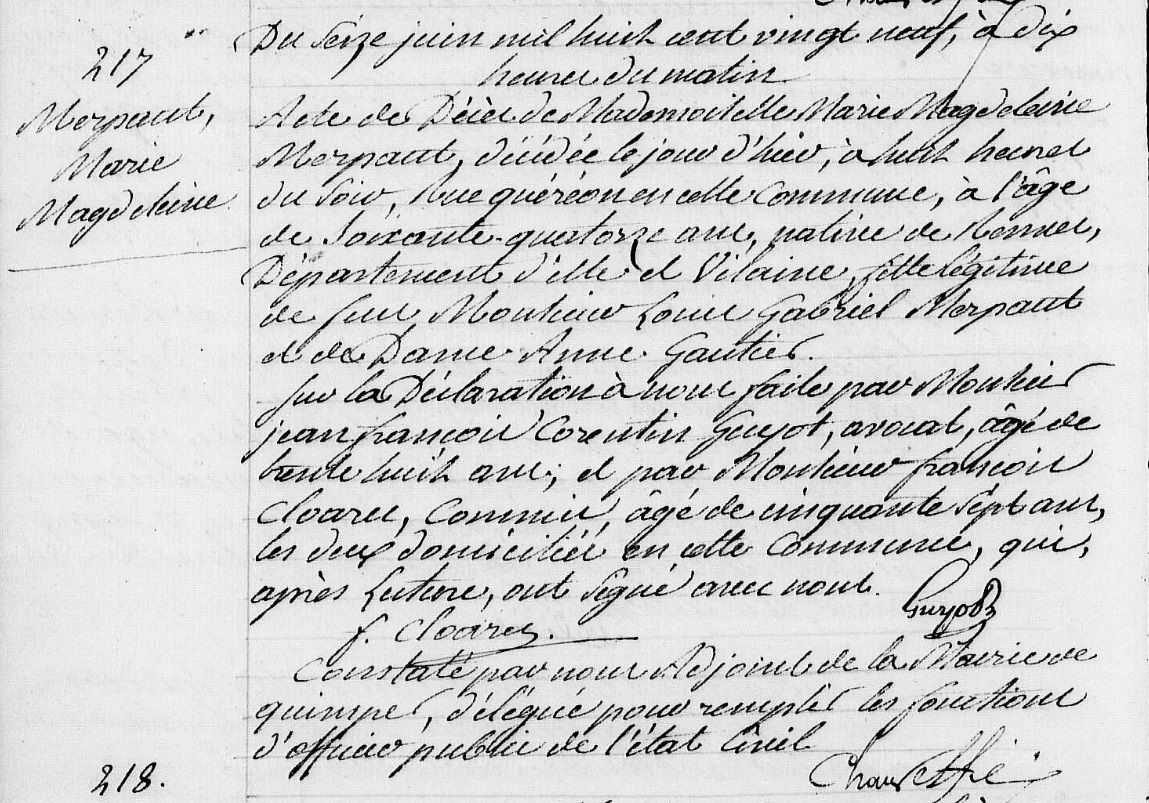 217
Morpaut,
Marie
Magdeleine
Du Seize juin mil huit cent vingt neuf, à dix
heures du matin
Acte de Décès de Mademoiselle Marie Magdeleine
Morpaut, décédée le jour d'hier, à huit heures
du soir, Rue quéréon en cette Commune, à l'âge
de Soixante-quatorze ans, native de Rennes,
Département d'ille et Vilaine, fille légitime
de feu Monsieur Louis Gabriel Morpaut
et de Dame Anne Gautier.
Sur la Déclaration à nous faite par Monsieur
jean françois Corentin Guyot, avocat, âgé de
trente huit ans; et par Monsieur françois
Cloarec, Commis, âgé de cinquante Sept ans,
les deux domiciliés en cette Commune, qui,
après Lecture, ont Signé avec nous.
Guyot
f. Cloarec.
Constaté par nous Adjoint de la Mairie de
quimper, délégué pour remplir les fonctions
d'officier public de l'état Civil
218.